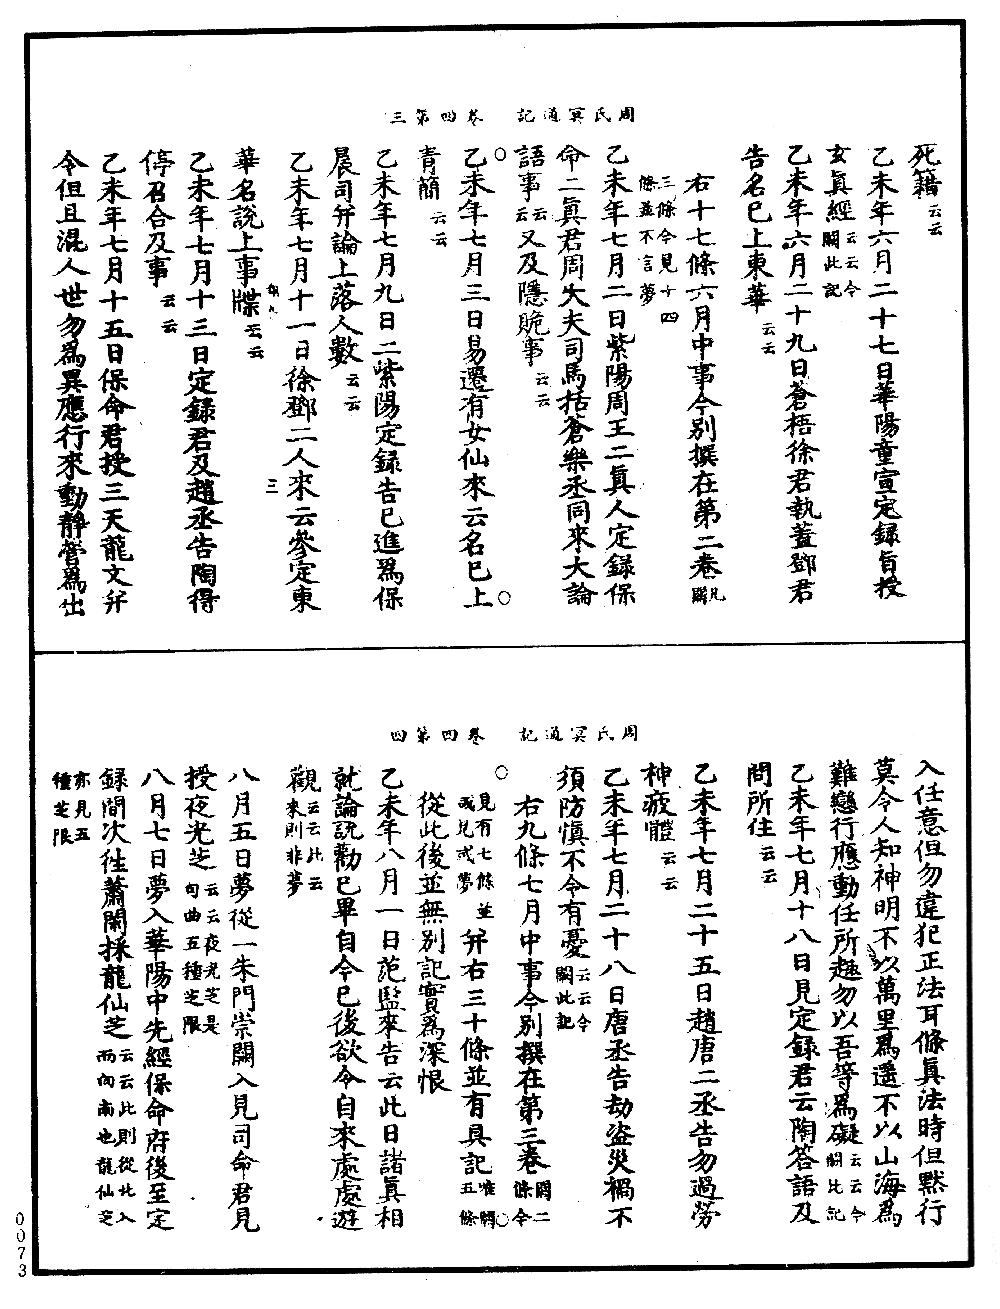 周氏冥通記　卷四第三
死籍云云
乙未年六月二十七日華陽童宣定録旨授
玄真經云云今闕此記
乙未年六月二十九日蒼梧徐君執蓋鄧君
告名已上東華云云
右十七條六月中事今別撰在第二卷凡闕
三條今見十四條並不言夢
乙未年七月二日紫陽周王二真人定録保
命二真君周大夫司馬括蒼樂丞同來大論
語事云云又及隱詭事云云
○乙未年七月三日易遷有女仙來云名已上○
青簡云云
乙未年七月九日二紫陽定録告已進為保
晨司并論上落人數云云
乙未年七月十一日徐鄧二人來云參定東
華名說上事牒云云
三
乙未年七月十三日定録君及趙丞告陶得
停召合及事云云
乙未年七月十五日保命君授三天龍文并
令但且混人世勿為異應行來動靜營為出
周氏冥通記　卷四第四
入任意但勿違犯正法耳條真法時但默行
莫令人知神明不以萬里為遥不以山海為
難戀行應動任所趣勿以吾等為礙云云今闕此記
乙未年七月十八日見定録君云陶答語及
問所住云云
乙未年七月二十五日趙唐二丞告勿過勞
神疲體云云
乙未年七月二十八日唐丞告劫盜災禍不
須防慎不令有憂云云今闕此記
○右九條七月中事今別撰在第三卷闕二條今○
見有七條並或見或夢并右三十條並有具記唯闕五條
從此後並無別記實為深恨
乙未年八月一日范監來告云此日諸真相
就論說勸已畢自今已後欲令自來處處遊
觀云云此云來則非夢
八月五日夢從一朱門崇闕入見司命君見
授夜光芝云云夜光芝是句曲五種芝限
八月七日夢入華陽中先經保命府後至定
録間次往蕭閑採龍仙芝云云此則從此入而向南也龍仙芝
亦見五種芝限
0073